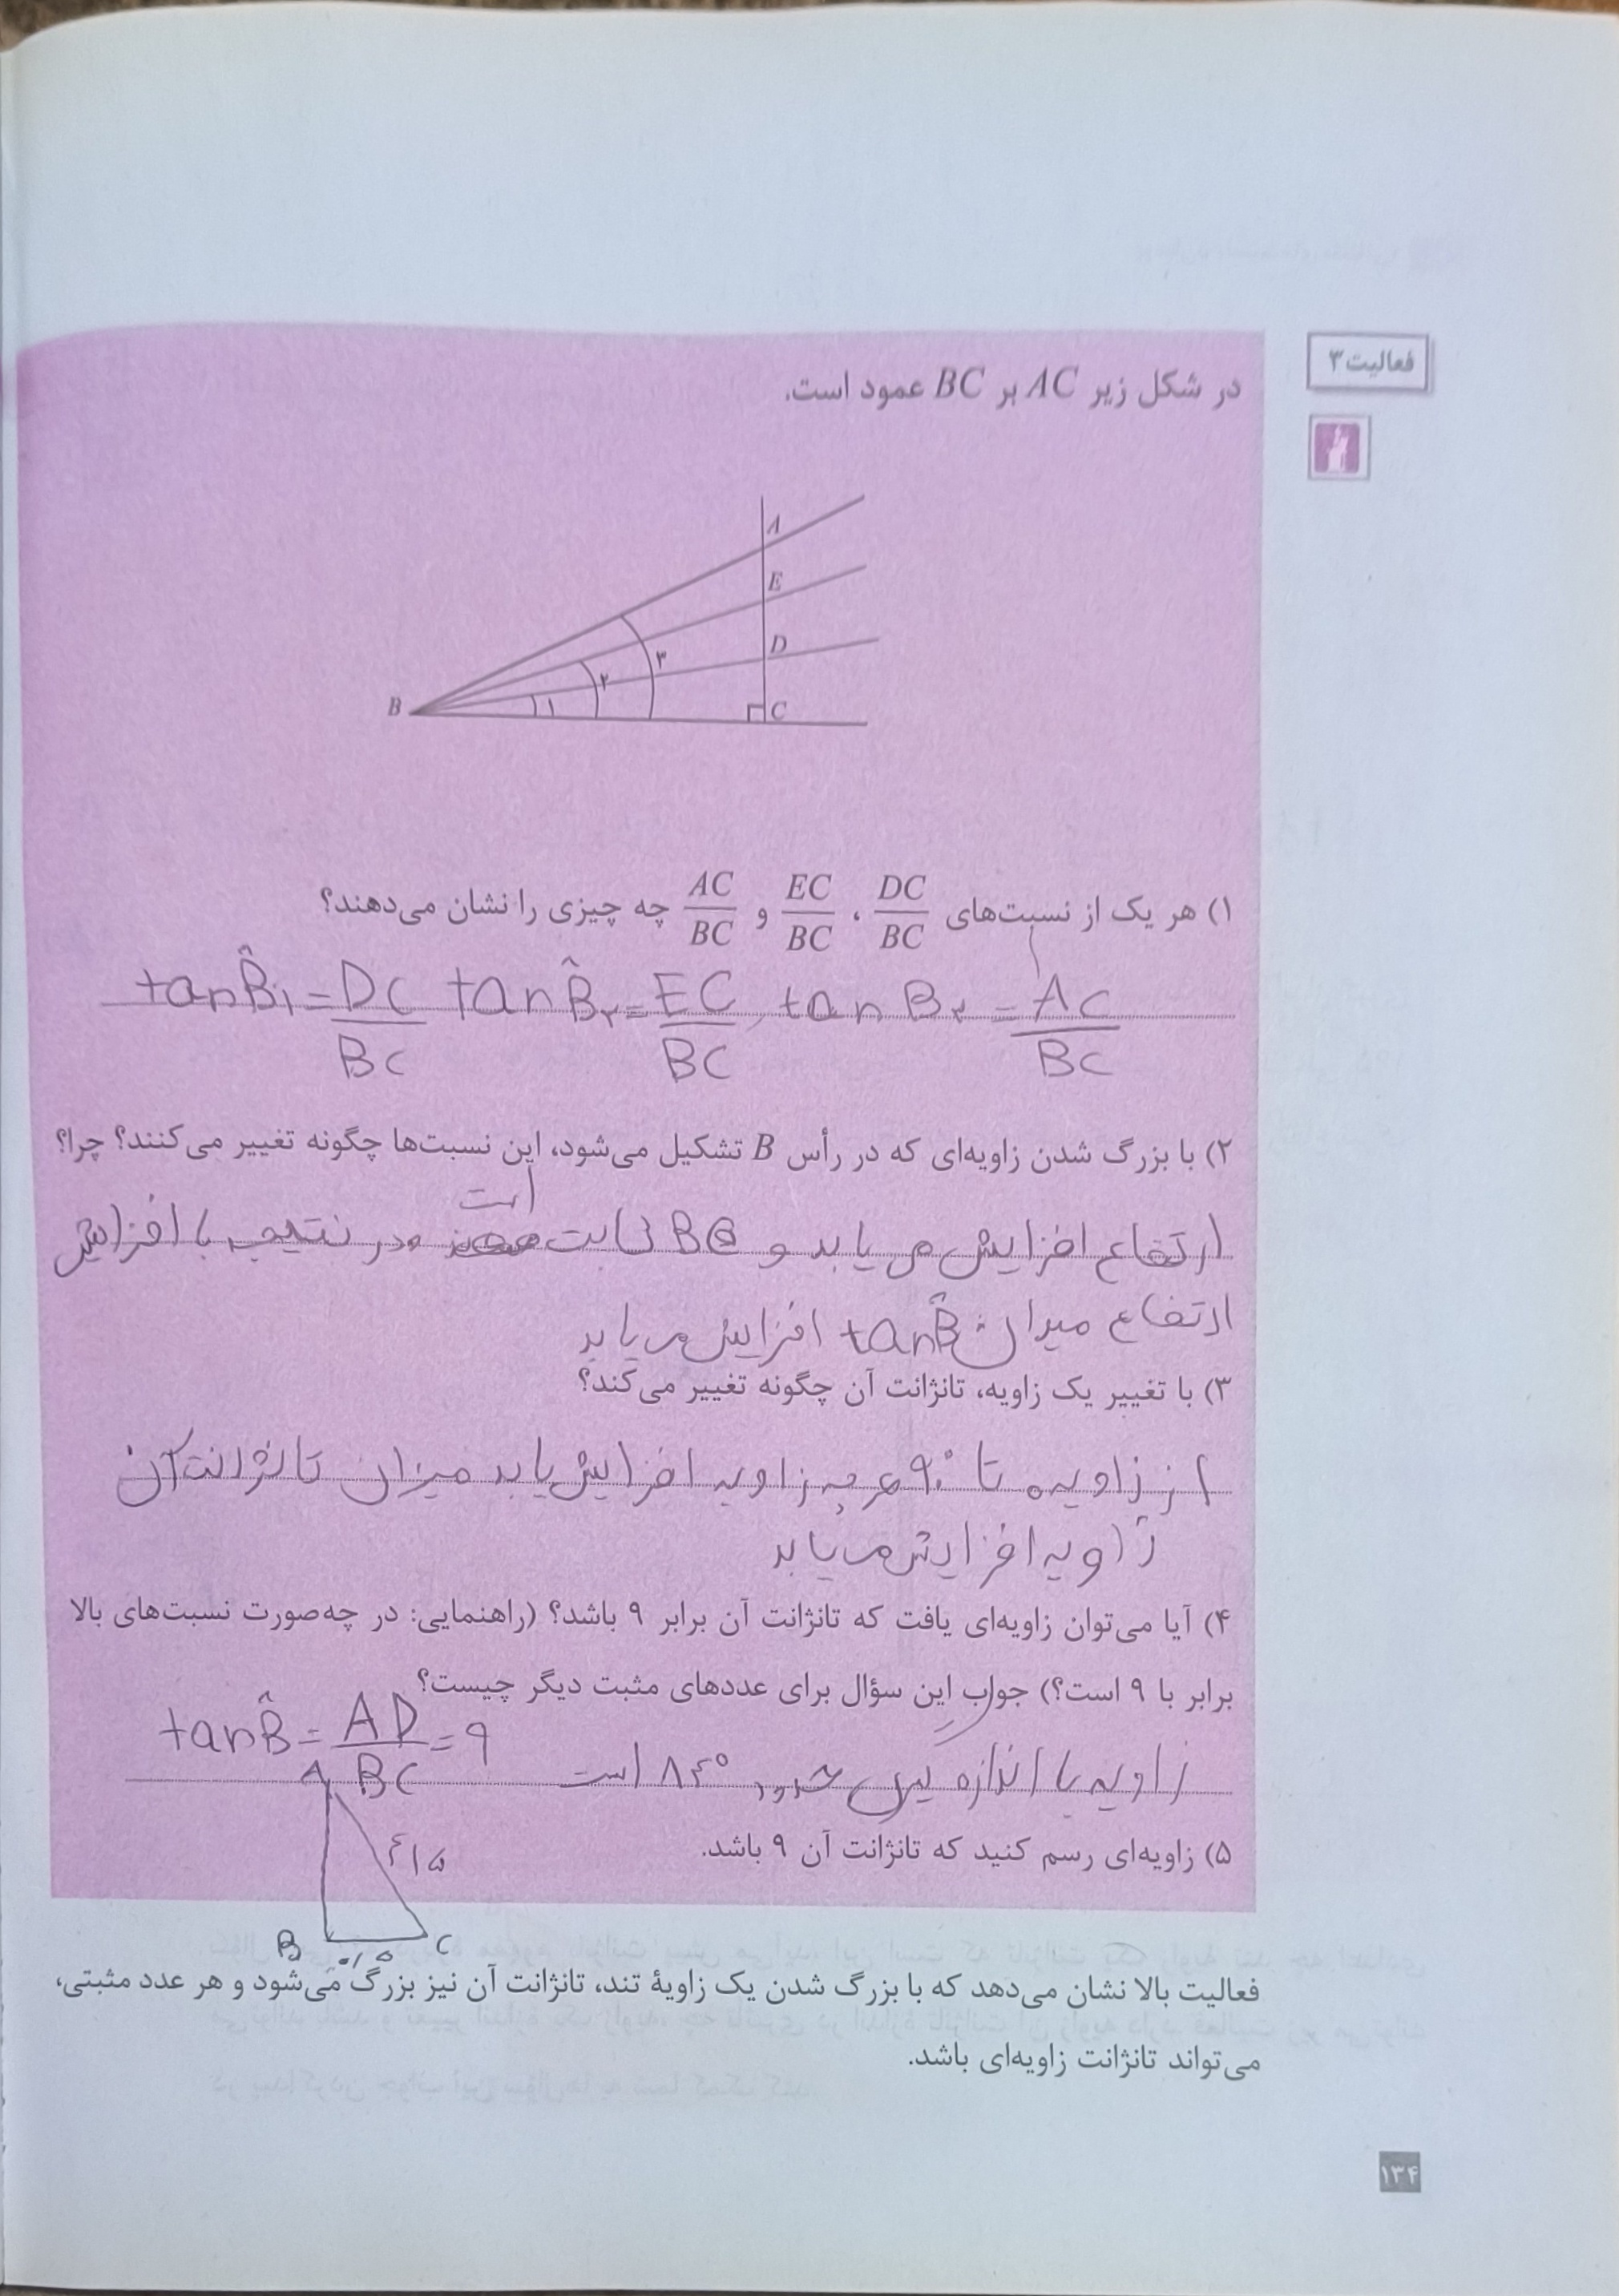 فعالیت ۳
در شکل زیر AC بر BC عمود است.
A
E
D
۳
۲
۱
B
C
۱) هر یک از نسبت‌های DC/BC ، EC/BC و AC/BC چه چیزی را نشان می‌دهند؟
tan B̂۱ = DC/BC tan B̂۲ = EC/BC , tan B۳ = AC/BC
۲) با بزرگ شدن زاویه‌ای که در رأس B تشکیل می‌شود، این نسبت‌ها چگونه تغییر می‌کنند؟ چرا؟
ارتفاع افزایش می یابد و BC ثابت است ودر نتیجه با افزایش
ارتفاع میزان tan B̂ افزایش می یابد
۳) با تغییر یک زاویه، تانژانت آن چگونه تغییر می‌کند؟
از زاویه ۰ تا ۹۰° هر چه زاویه افزایش یابد میزان تانژانت آن
زاویه افزایش می یابد
۴) آیا می‌توان زاویه‌ای یافت که تانژانت آن برابر ۹ باشد؟ (راهنمایی: در چه‌صورت نسبت‌های بالا
برابر با ۹ است؟) جواب این سؤال برای عددهای مثبت دیگر چیست؟
tan B̂ = AD/BC = ۹
زاویه با اندازه ° است
۵) زاویه‌ای رسم کنید که تانژانت آن ۹ باشد.
A
۴/۵
B
۰/۵
C
فعالیت بالا نشان می‌دهد که با بزرگ شدن یک زاویهٔ تند، تانژانت آن نیز بزرگ می‌شود و هر عدد مثبتی،
می‌تواند تانژانت زاویه‌ای باشد.
۱۳۴